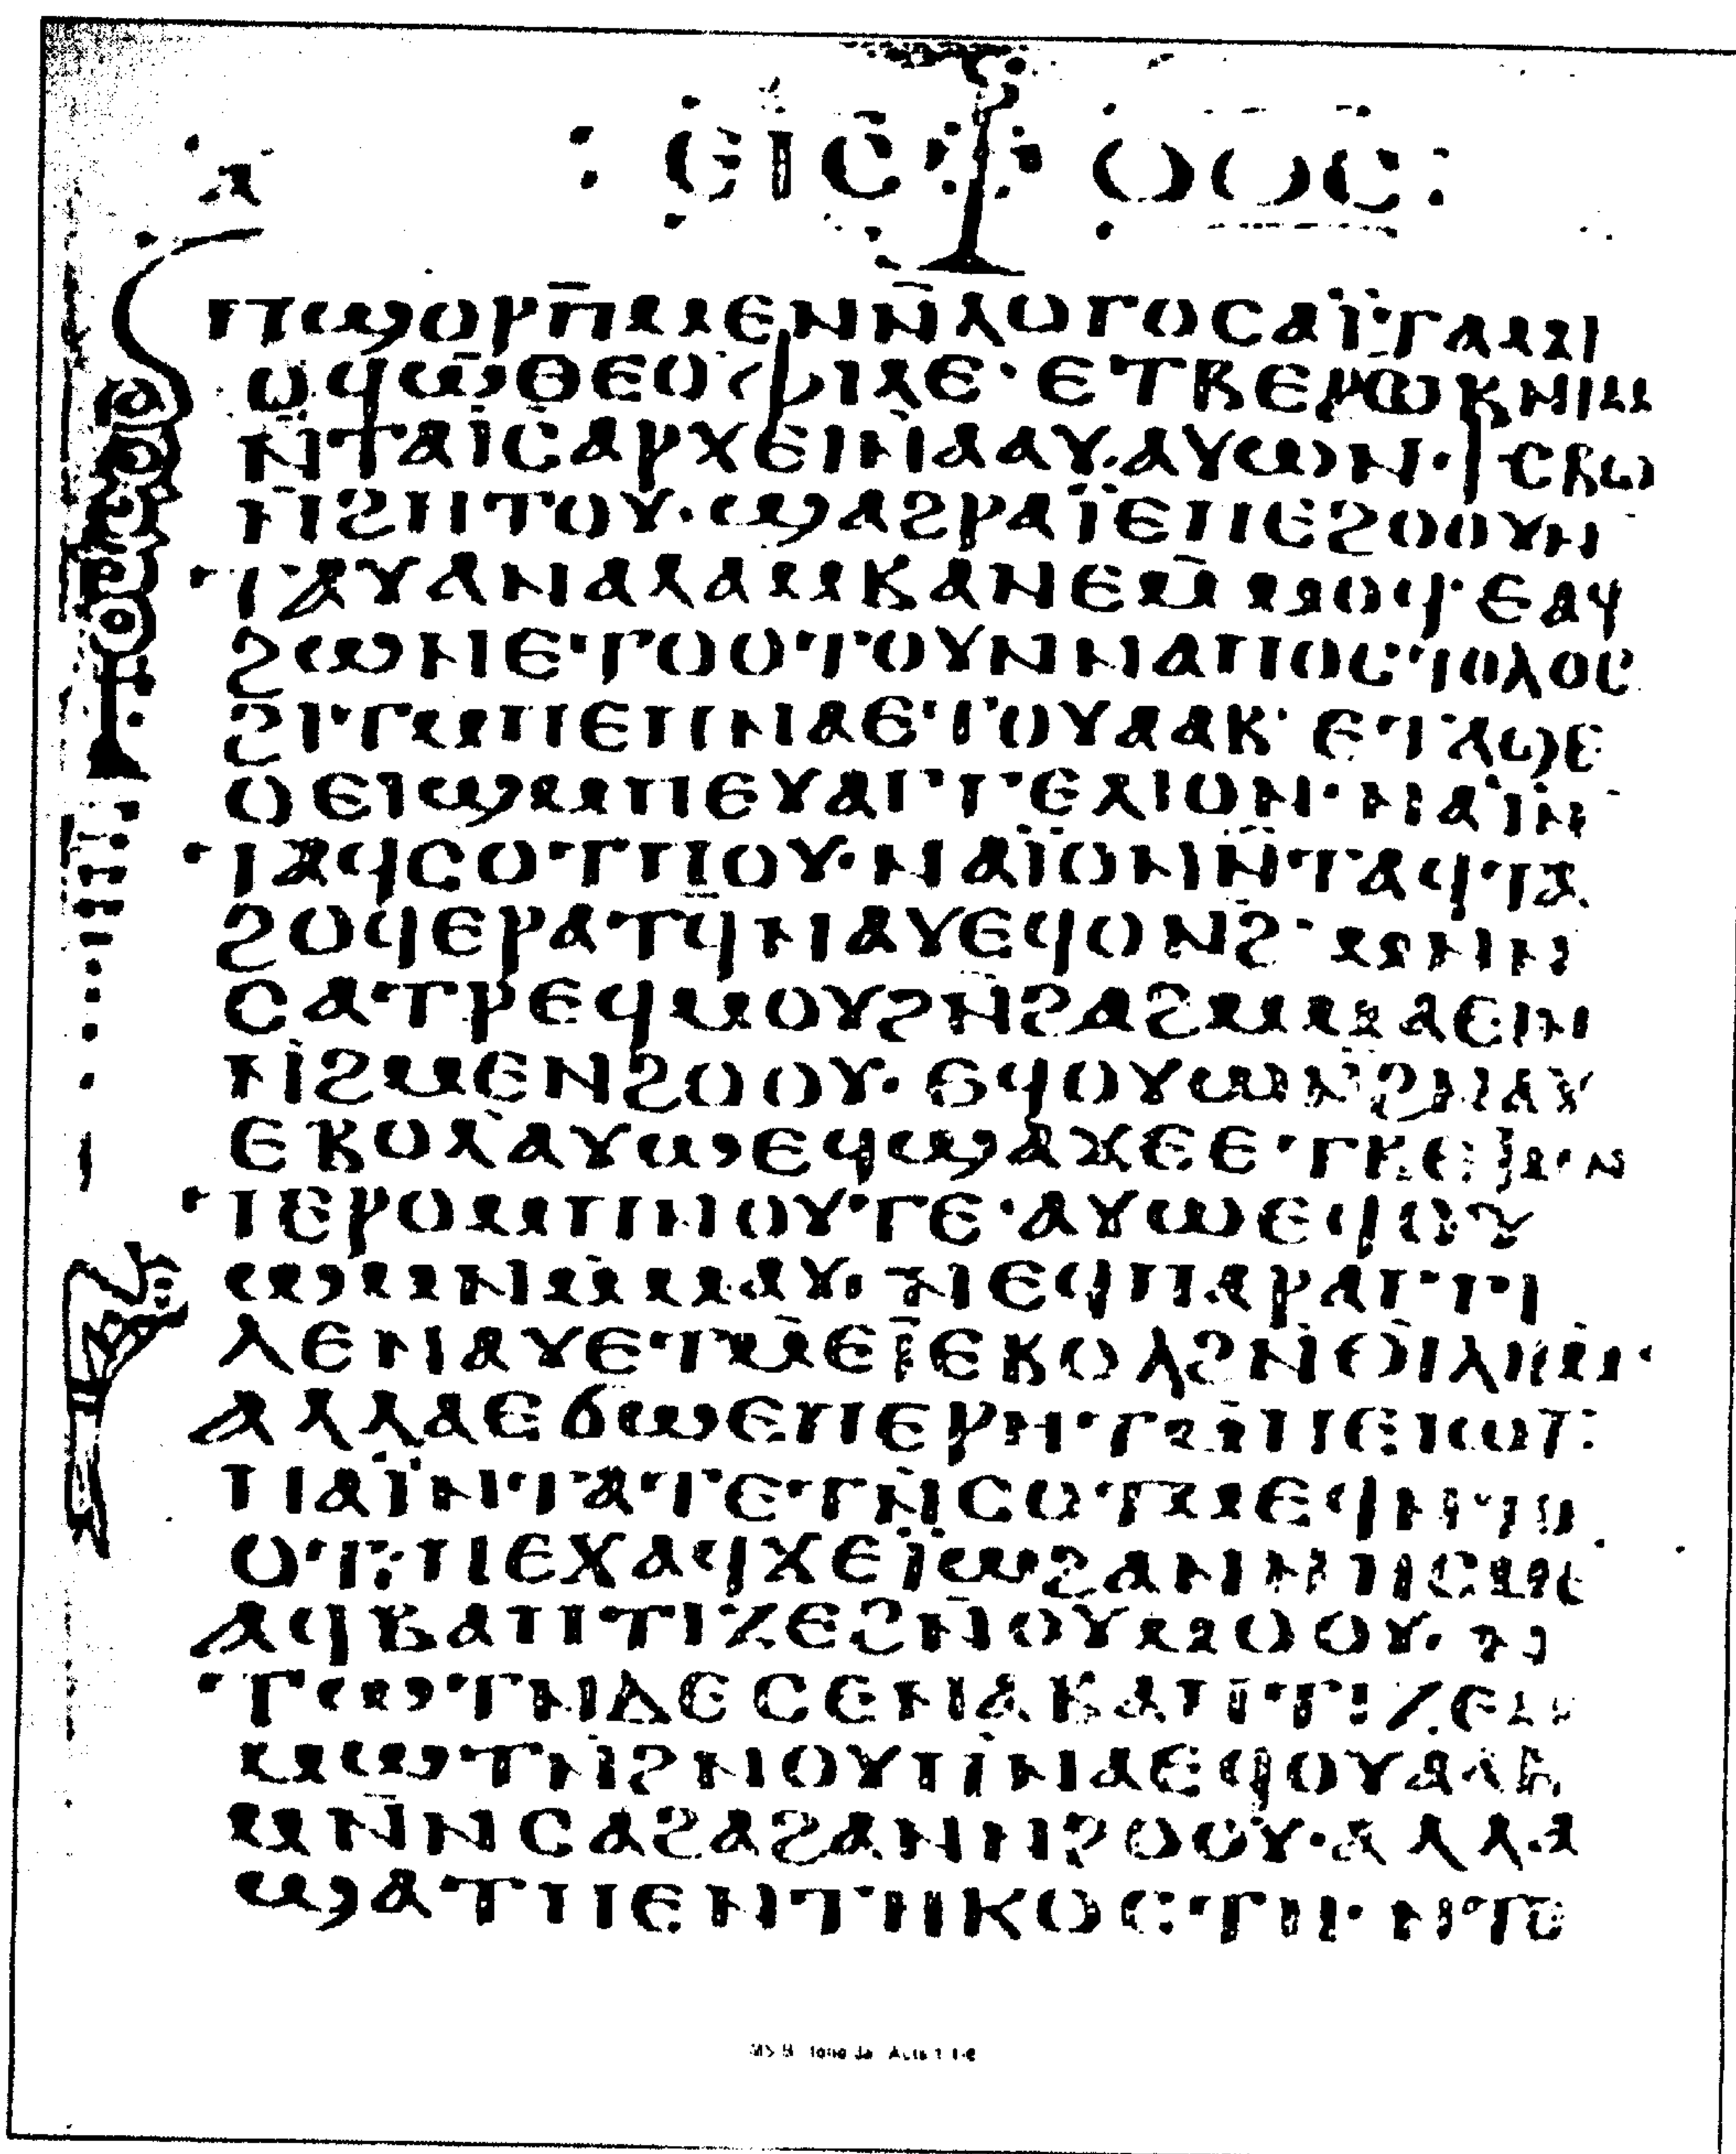 ⲁ̅ : ⲉⲓⲥ ⲑⲟⲥ :
ⲡϣⲟⲣⲡ̅ⲙⲉⲛⲛ̅ⲗⲟⲅⲟⲥⲁⲓ̈ⲧⲁⲙⲓ
ⲟϥⲱ̅ⲑⲉⲟⲫⲓⲗⲉ· ⲉⲧⲃⲉϩⲱⲃⲛⲓⲙ
ⲛ̅ⲧⲁⲓ̅ⲥ̅ⲁⲣⲭⲉⲓⲛ̅ⲁⲁⲩ·ⲁⲩⲱⲛ·ϯⲥⲃⲱ
ⲛ̅ϩⲏⲧⲟⲩ·ϣⲁϩⲣⲁⲓ̈ⲉⲡⲉϩⲟⲟⲩⲛ̅
ⲧⲁⲩⲁⲛⲁⲗⲁⲙⲃⲁⲛⲉⲙ̅ⲙⲟϥ·ⲉⲁϥ
ϩⲱⲛⲉⲧⲟⲟⲧⲟⲩⲛⲛⲁⲡⲟⲥⲧⲟⲗⲟⲥ
ϩⲓⲧⲙⲡⲉⲡⲛⲁⲉⲧⲟⲩⲁⲁⲃ· ⲉⲧⲁϣⲉ
ⲟⲉⲓϣⲙⲡⲉⲩⲁⲅⲅⲉⲗⲓⲟⲛ·ⲛⲁⲓ̈ⲛ̅
ⲧⲁϥⲥⲟⲧⲡⲟⲩ·ⲛⲁⲓ̈ⲟⲛⲛ̅ⲧⲁϥⲧⲁ
ϩⲟϥⲉⲣⲁⲧϥ̅ⲛⲁⲩⲉϥⲟⲛϩ̅· ⲙⲛⲛ
ⲥⲁⲧⲣⲉϥⲙⲟⲩϩⲛ̅ϩⲁϩⲙⲙⲁⲉⲓⲛ
ⲛ̅ϩⲙⲉⲛϩⲟⲟⲩ· ⲉϥⲟⲩⲱⲛϩ̅ⲛⲁⲩ
ⲉⲃⲟⲗⲁⲩⲱⲉϥϣⲁϫⲉⲉⲧⲃⲉⲧⲙⲛ
ⲧⲉⲣⲟⲙⲡⲛⲟⲩⲧⲉ·ⲁⲩⲱⲉϥⲟⲩ
ⲱⲙⲛⲙ̅ⲙⲁⲩ· ⲛⲉϥⲡⲁⲣⲁⲅⲅⲓ
ⲗⲉⲛⲁⲩⲉⲧⲙ̅ⲉⲓ̈ⲉⲃⲟⲗϩⲛ̅ⲑⲓⲗⲏⲙ·
ⲁⲗⲗⲁⲉϭⲱⲉⲡⲉⲣⲏⲧⲙ̅ⲡⲉⲓⲱⲧ·
ⲡⲁⲓ̈ⲛⲧⲁⲧⲉⲧⲛ̅ⲥⲟⲧⲙⲉϥⲛⲧⲟ
ⲟⲧ· ⲡⲉϫⲁϥϫⲉⲓ̈ⲱϩⲁⲛⲛⲏⲥⲙⲉ
ⲁϥⲃⲁⲡⲧⲓⲍⲉϩⲛ̅ⲟⲩⲙⲟⲟⲩ· ⲛ
ⲧⲱⲧⲛⲇⲉⲥⲉⲛⲁⲃⲁⲡⲧⲓⲍⲉⲙ
ⲙⲱⲧⲛ̅ϩⲛⲟⲩⲡ̅ⲛ̅ⲁⲉϥⲟⲩⲁⲁⲃ
ⲙⲛ̅ⲛⲥⲁϩⲁϩⲁⲛⲛϩⲟⲟⲩ·ⲁⲗⲗⲁ
ϣⲁⲧⲡⲉⲛⲧⲏⲕⲟⲥⲧⲏ·ⲛⲧⲟ
MS B folio 3a Acts 1 1-6